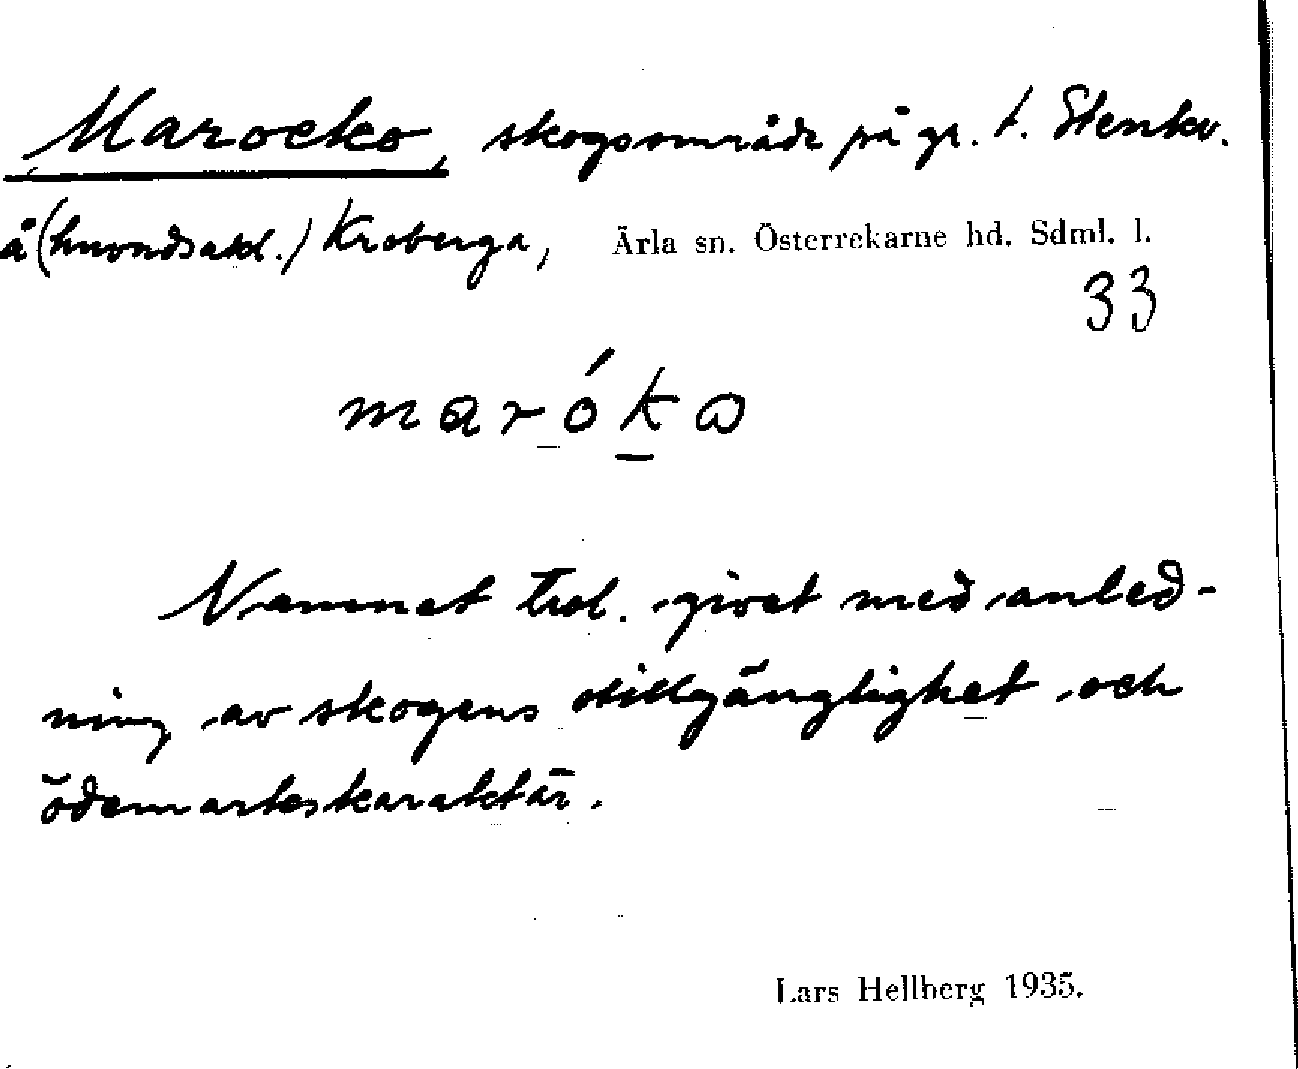 Marocko, skogsområde på gr. t. Stenkv.
å (huvudsakl.) Kroberga, Ärla sn. Österrekarne hd. Sdml. l.
33
maróka
Namnet trol. givet med anled-
ning av skogens otillgänglighet och
ödemarkskaraktär.
Lars Hellberg 1935.